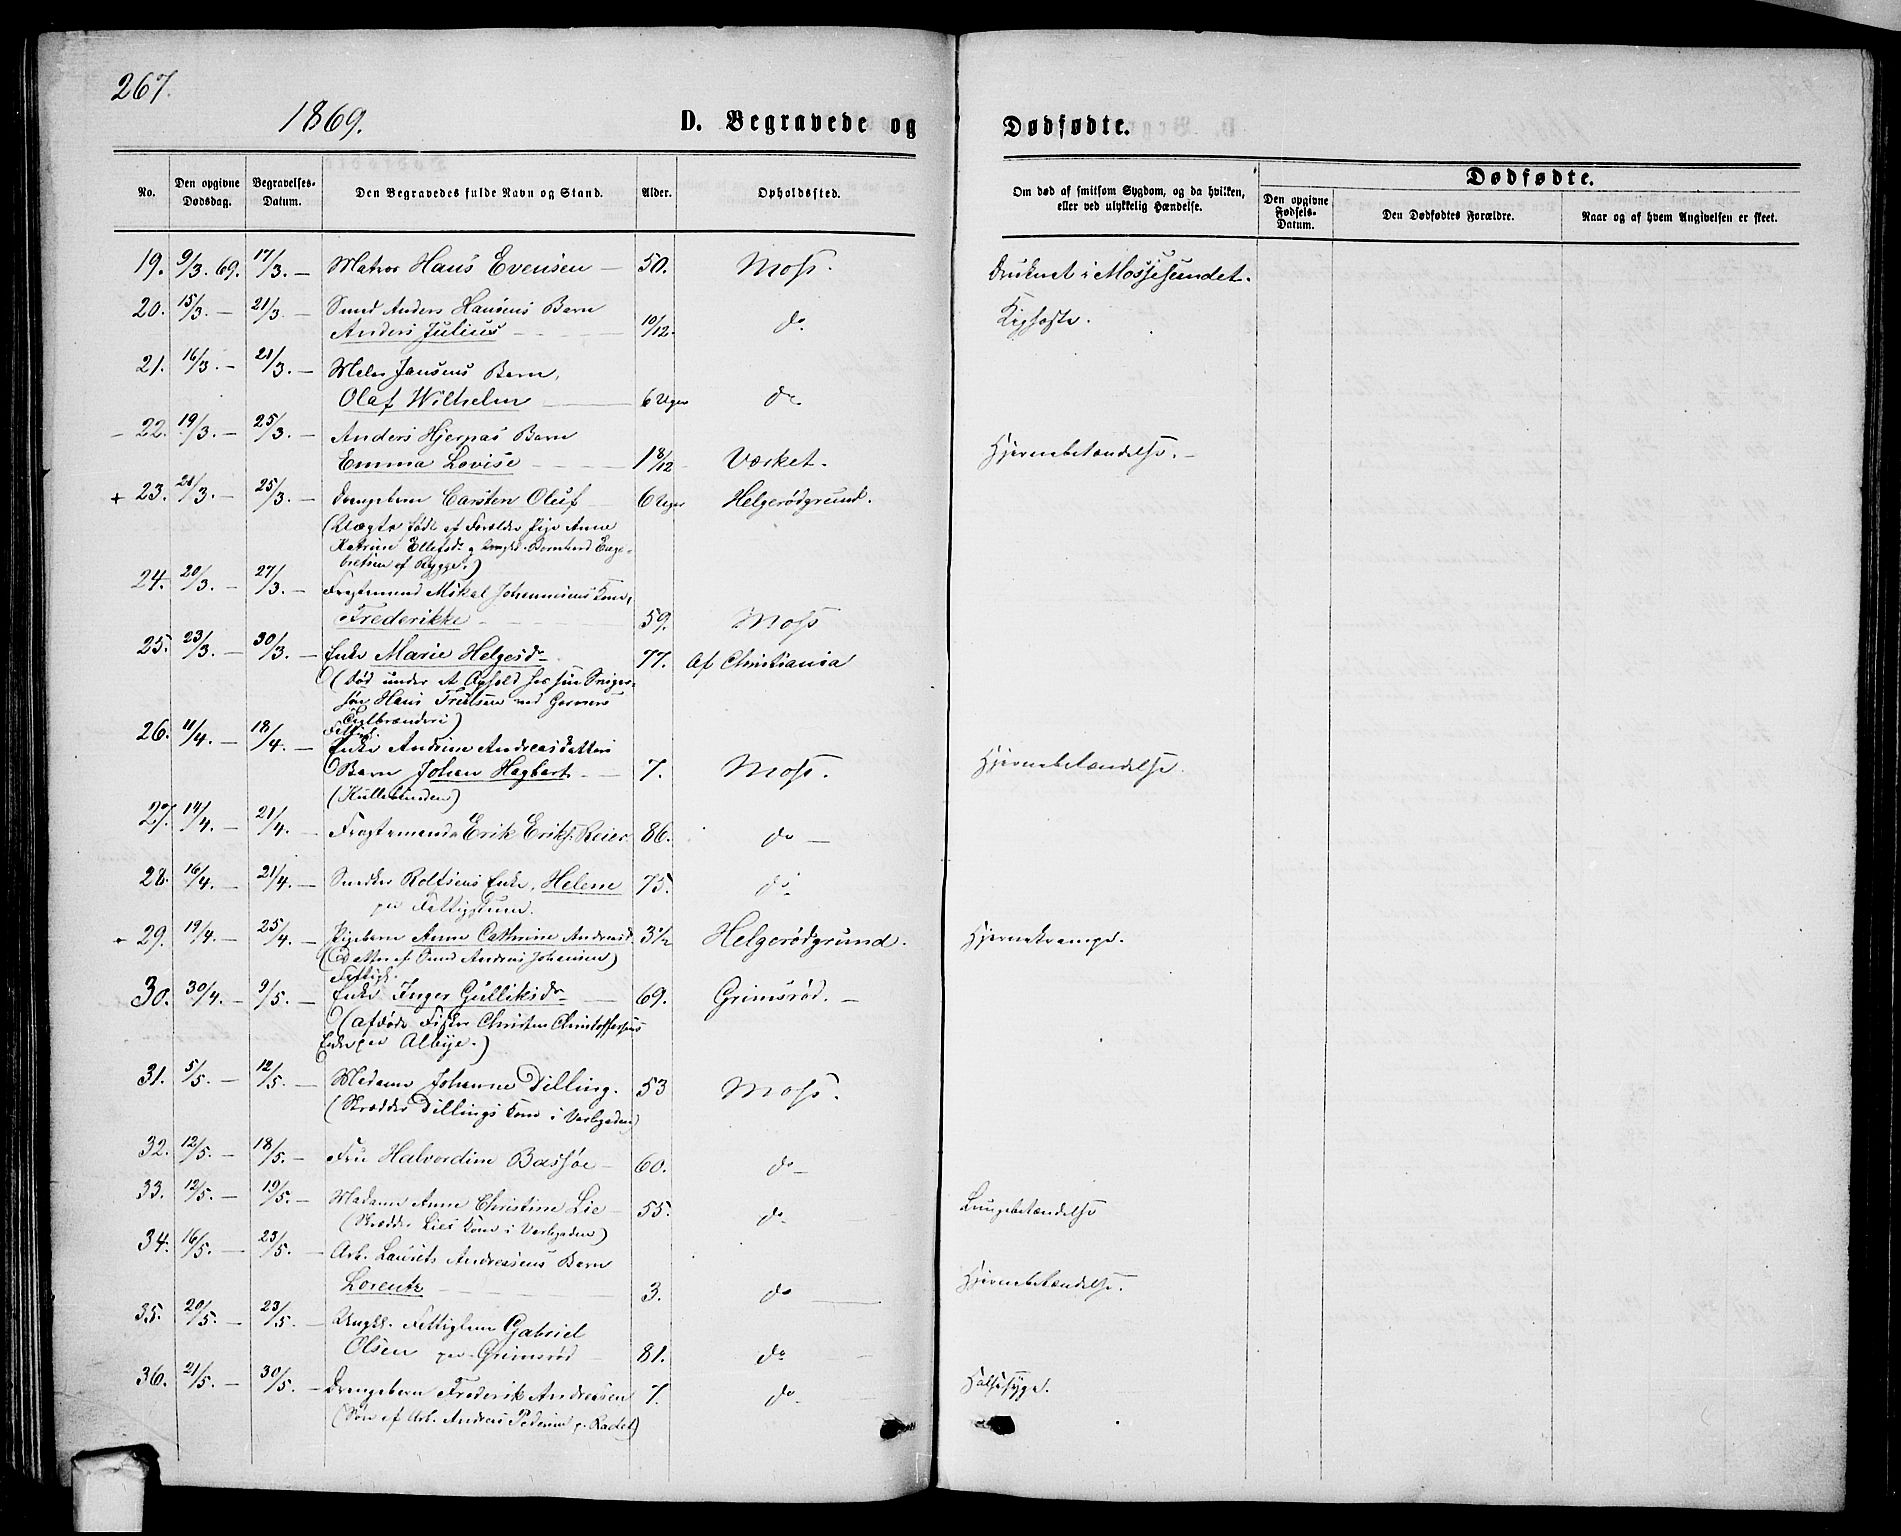 267.
1869.
D. Begravede og Dødfødte.
No. Den opgivne Dødsdag. Begravelses-Datum. Den Begravedes fulde Navn og Stand. Alder. Opholdssted. Om død af smitsom Sygdom, og da hvilken, eller ved ulykkelig Hændelse.
Dødfødte.
Den opgivne Fødsels-Datum. Den Dødfødtes Forældre. Naar og af hvem Angivelsen er skeet.
19. 9/3. 69. 17/3. — Matros Hans Evensen — 50. Moss. Druknet i Mossesundet.
20. 15/3. — 21/3. — Smed Anders Hansens Barn
Anders Julius — 10/12. do. Kighoste.
21. 16/3. — 21/3. — Jansens Barn,
Olaf Wilhelm — 6 Uger do.
22. 19/3. — 25/3. — Anders Hjerpas Barn
Emma Lovise — 1 8/12 Værket. Hjernebetændelse. —
+ 23. 21/3. — 25/3. — Drengebarn Carsten Oluf — 6 Uger Helgerødgrund.
(Uægte født af Forældre Pige Anne
Katrine Ellefsdr. og Ungkl. Bernhard Enge-
bretsen af Rygge.)
24. 20/3. — 27/3. — Fragtemand Mikal Johannesens Kone,
Frederikke — 59. Moss
25. 23/3. — 30/3. — Enke Marie Helgesdr — 77. Af Christiania
(død under et Ophold hos sin Sviger-
søn Hans Truelsen ved Gerners
Teglbrænderi)
26. 11/4. — 18/4. — Fattigl.
Enke Andrine Andreasdatters
Barn Johan Hagbart. — 7. Moss. Hjernebetændelse.
(Kullebunden)
27. 14/4. — 21/4. — Fragtemand Erik Eriks. Reier 86. do —
28. 16/4. — 21/4. — Snedker Roltsens Enke, Helene 75. do
paa Fattighuset.
29. 19/4. — 25/4. — Pigebarn Anne Cathrine Andreasd. 3 1/2 Helgerødgrund. Hjernekrampe.
(Datter af Smed Andreas Johansen)
30. 30/4. — 9/5. — Fattigl.
Enke Inger Gulliksdr — 69. Grimsrød. —
(afdøde Fisker Christen Christoffersens
Enke paa Albye.)
31. 5/5. — 12/5. — Madame Johanne Dilling. 53 Moss.
(Skrædder Dillings Kone i Vorlegaden)
32. 12/5. — 18/5. — Fru Halvordine Bassøe — 60. do —
33. 12/5. — 19/5. — Madame Anne Christine Lie — 55. do — Lungebetændelse
(Skrædder Lies Kone i Vorlegaden)
34. 16/5. — 23/5. — Arb. Laurits Andreasens Barn
Lorentz — 3. do — Hjernebetændelse.
35. 20/5. — 23/5. — Ungkl. Fattiglem Gabriel
Olsen paa Grimsrød — 81. do
36. 21/5. — 30/5. — Drengebarn Frederik Andreasen 7. do — Halssyge.
(Søn af Arb. Andreas Pedersen p. Rådet)